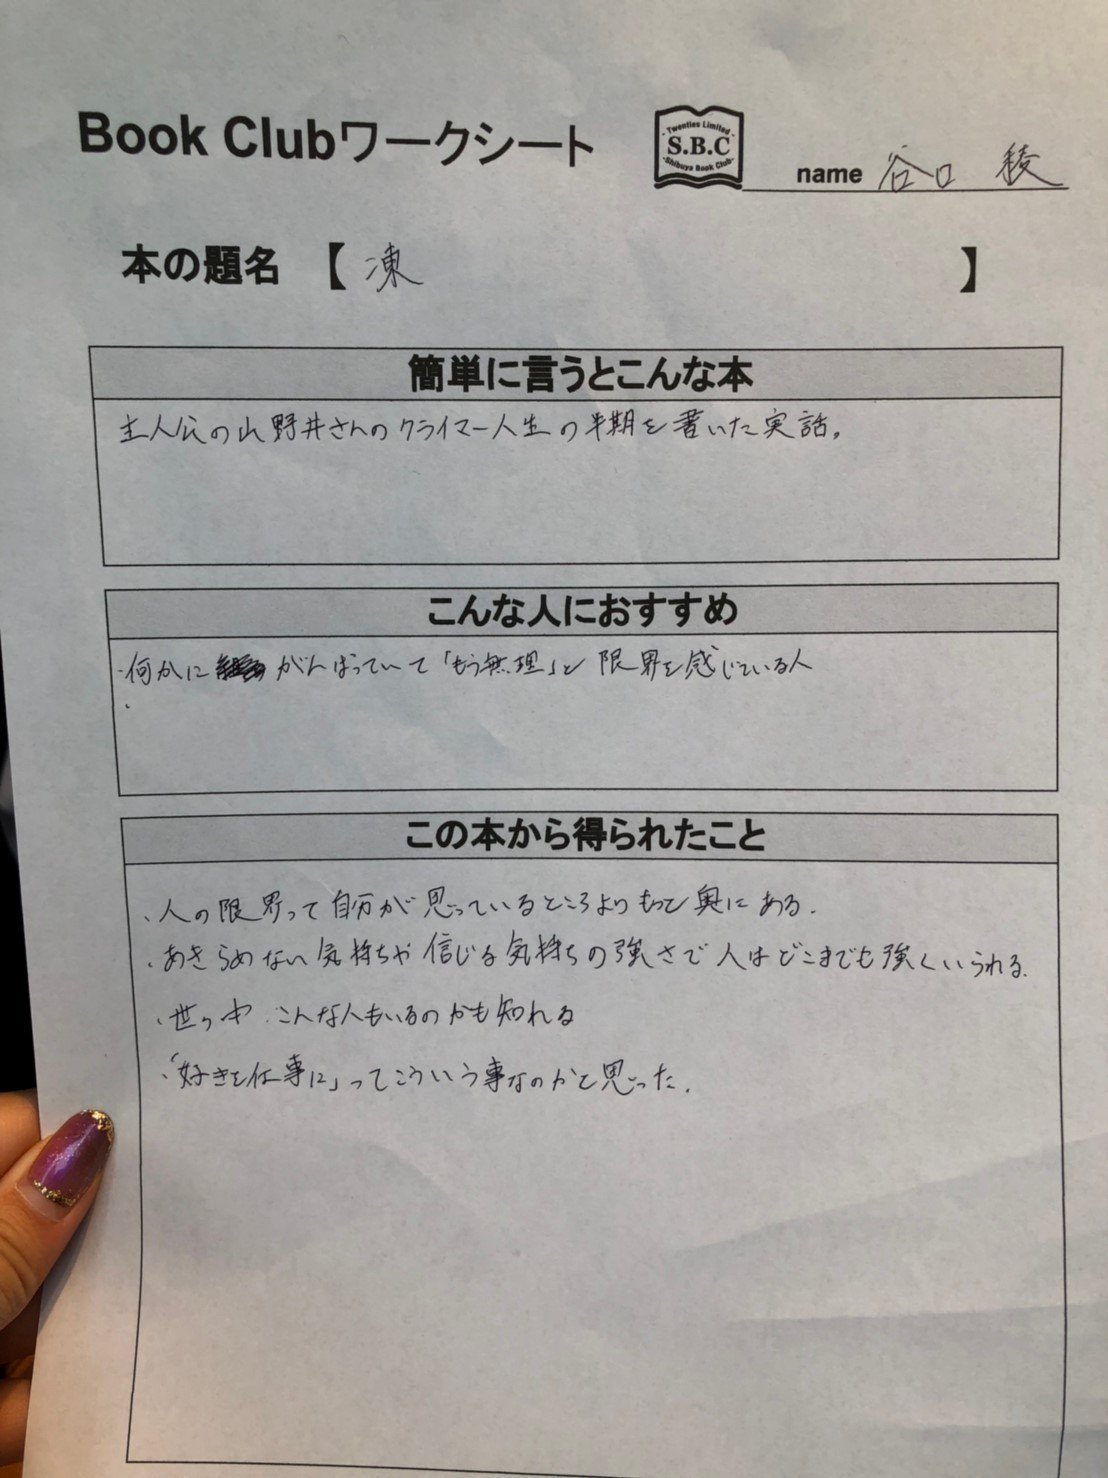 Book Clubワークシート
Twenties Limited
S.B.C
Shibuya Book Club
name 谷口 稜
本の題名 【凍】
簡単に言うとこんな本
主人公の山野井さんのクライマー人生の半期を書いた実話。
こんな人におすすめ
・何かに がんばっていて「もう無理」と 限界を感じている人
・
この本から得られたこと
・人の限界って自分が思っているところよりもっと奥にある。
・あきらめない気持ちや信じる気持ちの強さで人はどこまでも強くいられる。
・世の中、こんな人もいるのかも知れる
・「好きを仕事に」ってこういう事なのかと思った。